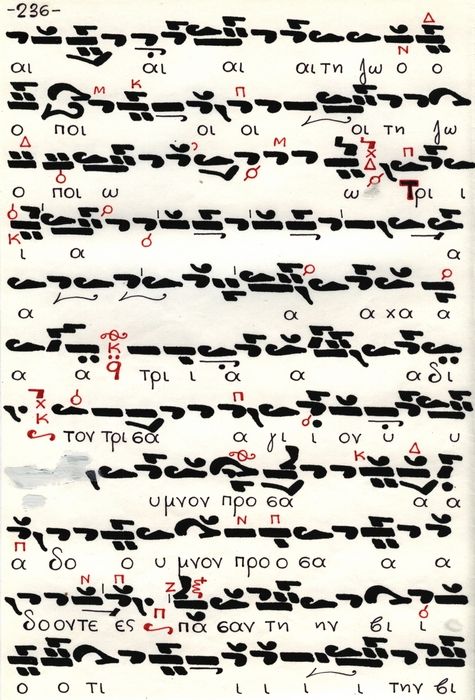 -236-
αι αι αι αι τη ζω ο ο
ο ποι οι οι οι τη ζω
ο ποι ω ω Τρι ι
ι α α
α α α χα α
α α τρι ι α α α δι
τον τρι σα α γι ι ον υ υ
υ μνον προ σα α α
α δο ο υ μνον προ ο σα α α
δο οντε ες πα σαν τη ην βι ι
ο ο τι ι ι ι ι την βι